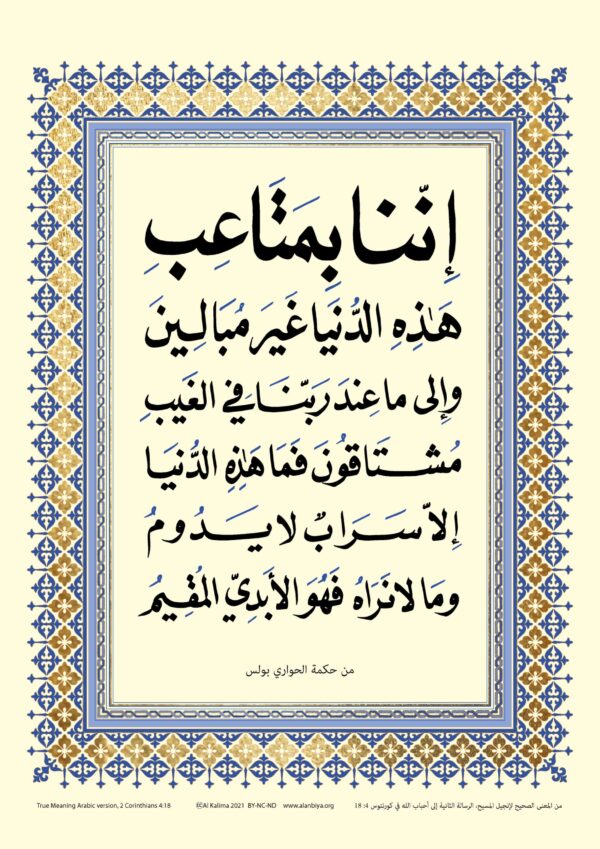 إِنّنا بِمَتَاعِبِ
هَـٰذِهِ الدُّنيَا غَيرَ مُبَالِـينَ
وإِلى ما عِندَ رَبّنَـا فِي الغَيبِ
مُشـتَاقُونَ فَمَا هَـٰذِهِ الدُّنيَـا
إِلاّ سَـرَابٌ لا يَـدُومُ
ومَا لا نَرَاهُ فَهُوَ الأَبَدِيّ المُقِيـمُ
من حكمة الحواري بولس
True Meaning Arabic version, 2 Corinthians 4:18 Al Kalima 2021 BY-NC-ND www.alanbiya.org من المعنى الصحيح لإنجيل المسيح، الرسالة الثانية إلى أحباب الله في كورنتوس 4: 18